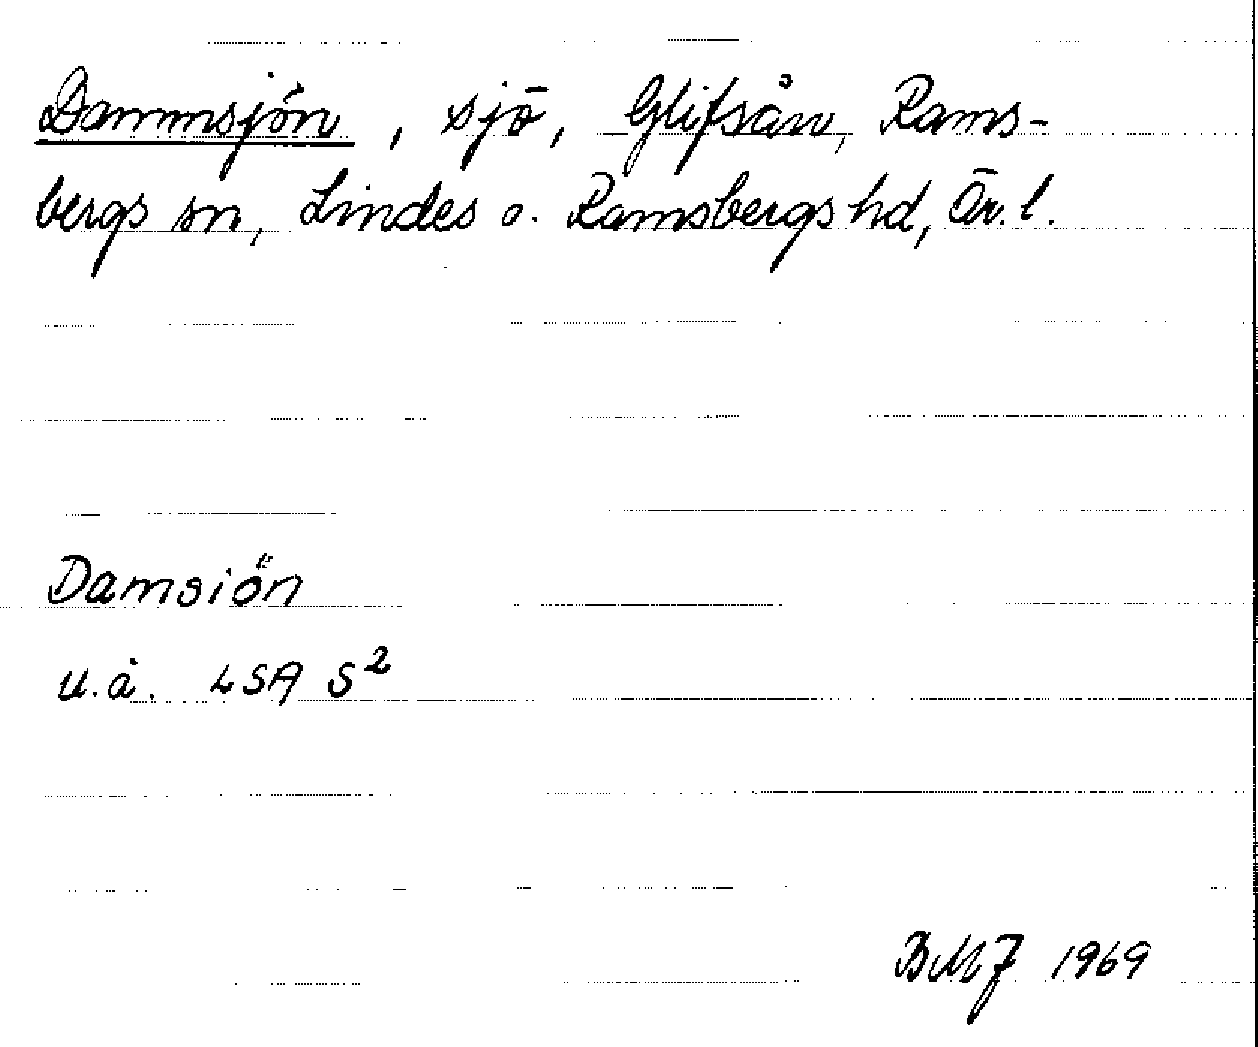 Dammsjön, sjö, Glifsån, Rams-
bergs sn, Lindes o. Ramsbergs hd, Ör. l.
Damsiön
u.å. LSA S²
BMJ 1969